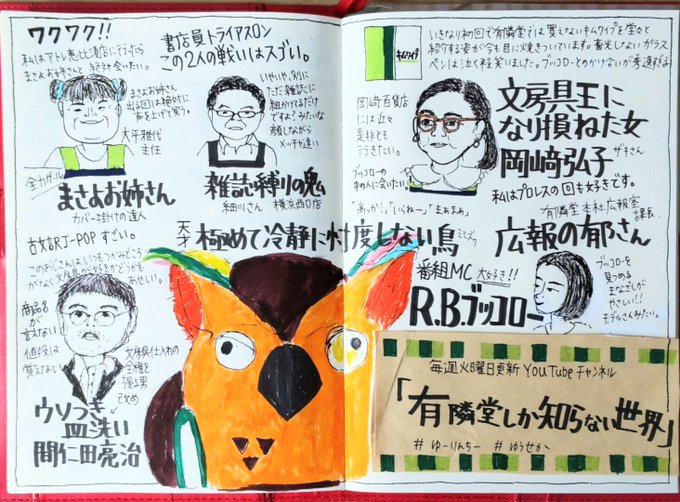 ワクワク!!
私はアトレ恵比寿店に行ったら
まさよお姉さんと絶対会いたい。
まさよお姉さん
出る回は絶対に
声を上げて笑う。
大平雅代
主任
全力ガール
まさよお姉さん
カバー掛けの達人
書店員トライアスロン
この2人の戦いはスゴい。
いやいや、別に
ただ雑誌に
紐かけてるだけ
ですよ?みたいな
顔しながら
メッチャ速い
雑誌縛りの鬼
細川さん 横浜西口店
古文訳J-POP すごい。
このおじさんはいつもつかみどころ
がなく
あせい。
商品名
が
言えない
値段は
覚えない
文房具仕入れの
全権を
握る男
改め
ウソつき
皿洗い
間仁田亮治
キムワイプ
いきなり初回で有隣堂では買えないキムワイプを堂々と
紹介する姿が今も目に焼きついています。蓄光しないガラス
ペンは泣く程笑いました。ブッコローとのかけ合いが秀逸すぎ
岡﨑百貨店
には近々
是非とも
行きたい。
ブッコローの
中の人に会いたい
文房具王に
なり損ねた女
岡﨑弘子
ザキさん
私はプロレスの回も好きです。
「いらねー」「まぁまぁ」
天才 極めて冷静に忖度しない鳥
ミミズク
番組MC 大好き!!
R.B.ブッコロー
有隣堂 本社広報室
課長
広報の郁さん
ブッコローを
見つめる
まなざしが
やさしい!!
モデルさんみたい。
毎週火曜日更新 YouTubeチャンネル
「有隣堂しか知らない世界」
#ゆーりんちー #ゆうせか